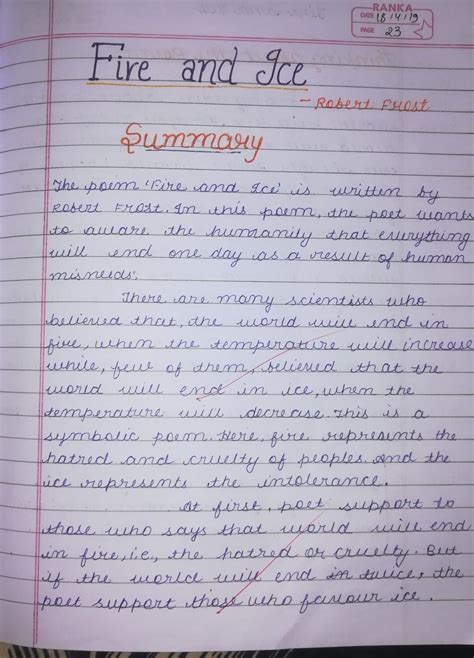 RANKA
DATE 18/4/19
PAGE 23
Fire and Ice
- Robert Frost
Summary
The poem 'Fire and Ice' is written by
Robert Frost. In this poem, the poet wants
to aware the humanity that everything
will end one day as a result of human
misneids'.
There are many scientists who
believed that, the world will end in
fire, when the temperature will increase
while, few of them, believed that the
world will end in ice, when the
temperature will decrease. This is a
symbolic poem. Here, fire represents the
hatred and cruelty of peoples. And the
ice represents the intolerance.
At first, poet support to
those who says that world will end
in fire, i.e., the hatred or cruelty. But
if the world will end in twice, the
poet support those who favour ice.